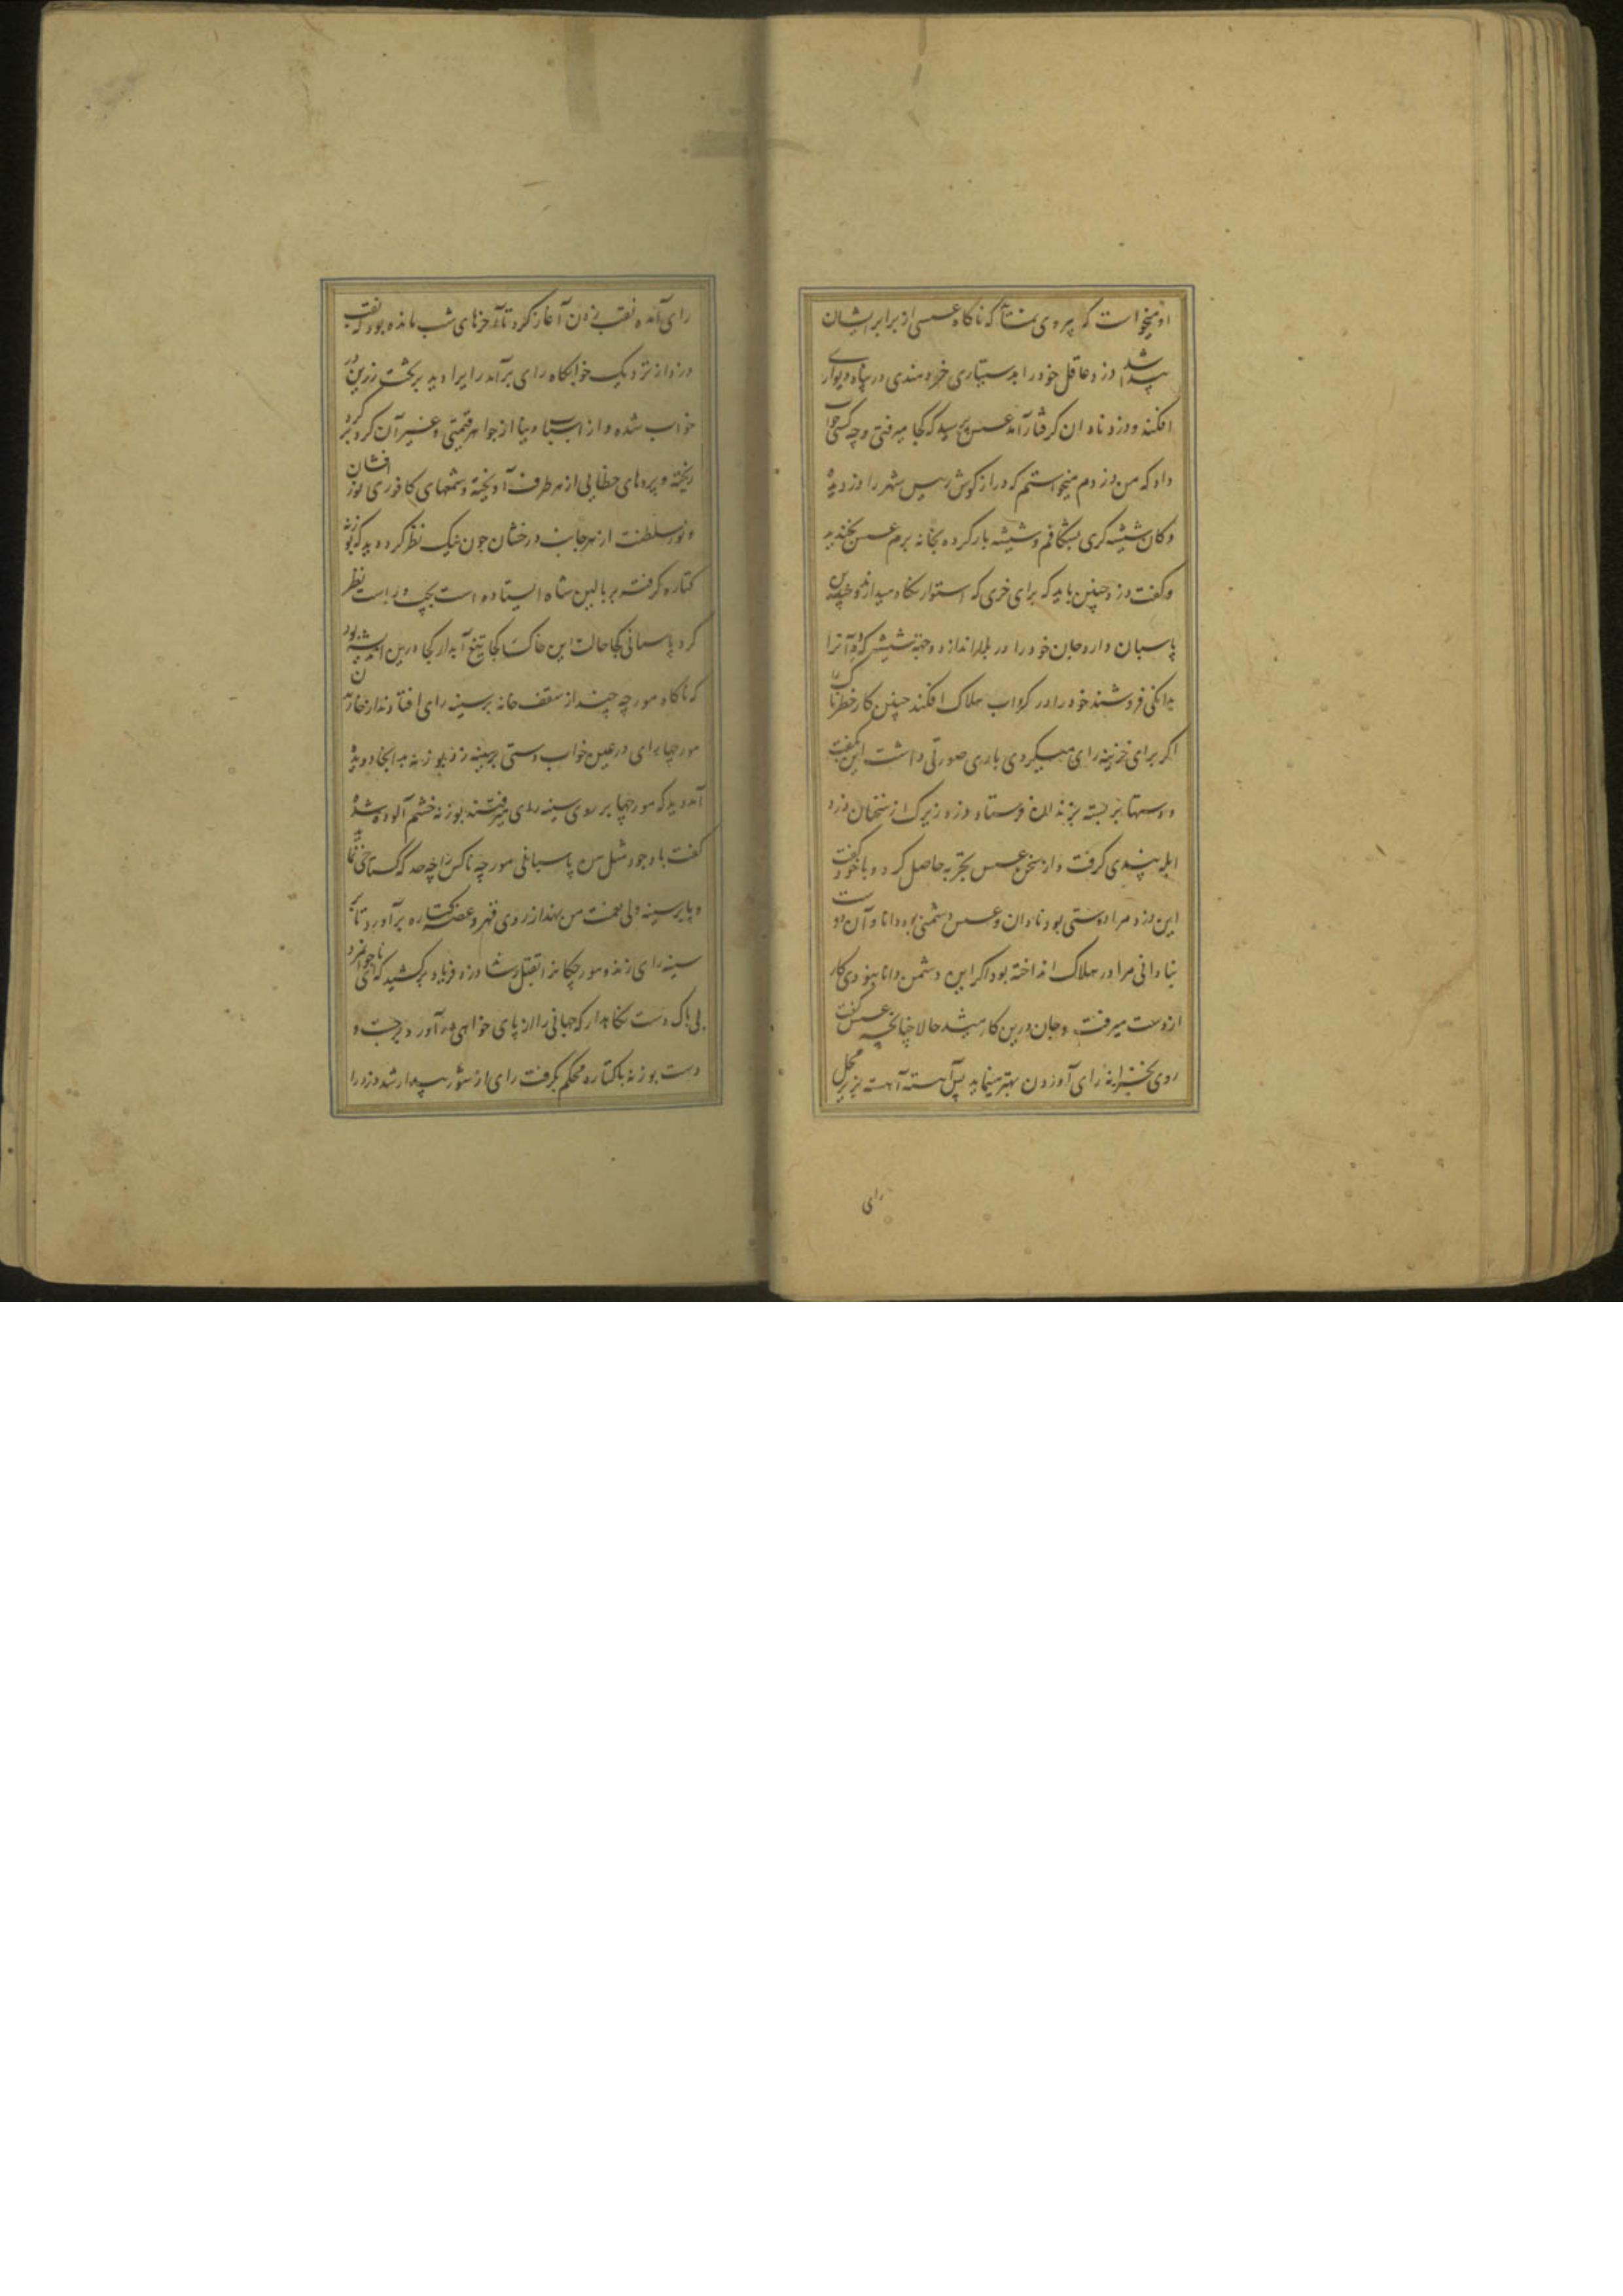 او میخواست که پیروی نمتا که ناکاه عسسی از برابر ایشان
پیدا شد دزد عاقل خود را بدستیاری خردمندی در پناه دیواری
افکند و دزد نادان کرفتار آمد عسس پرسید که کجا میرفتی و چه کسی جواب
داد که من دزدم میخواستم که دراز کوش رییس شهر را دزدیده
دکان شیشه کری بشکافم و شیشه بار کرده بخانه برم عسس بخندید
و کفت دزد چنین باید که برای خری که استوار نکاه میدارند و چندین
پاسبان دارد جان خود را در بلا اندازد و جهة شیشه که ده آنرا
بدانکی فروشند خود را در کرداب هلاک افکند چنین کار خطرناک
اکر برای خزینه رای میکردی باری صورتی داشت این بکفت
و دستها بر بسته بزندان فرستاد دزد زیرک از سخنان دزد
ابله پندی کرفت و از سخن عسس تجربه حاصل کرد و با خود کفت
این دزد مرا دوستی بود نادان و عسس دشمنی بود دانا و آن دوست
بنادانی مرا در هلاک انداخته بود اکر این دشمن دانا نبودی کار
از دست میرفت و جان درین کار میشد حالا چنانچه عسس کفت
روی بخزانه رای آوردن بهتر مینماید پس آهسته آهسته بزیر محل
رای
رای آمده نقب زدن آغاز کرد تا آخرهای شب مانده بود که نقب
دزد از نزدیک خوابکاه رای برآمد رایرا دید بر تخت زرین در
خواب شده و از اسباب دنیا از جواهر قیمتی و غیر آن کرد بر کرد
ریخته و پردهای خطایی از هر طرف آویخته و شمعهای کافوری نور افشان
و نور سلطنت از هر جانب درخشان چون نیک نظر کرد دید که بوزنه
کتاره کرفته بر بالین شاه ایستاده است بچپ و راست نظر
کرد پاسبانی کجا حالت این خاکسا کجا تیغ آبدار کجا درین اندیشه بود
که ناکاه مورچه چند از سقف خانه بر سینه رای افتادند از خاریدن
مورچها رای در عین خواب دستی بر سینه زد بوزنه بدانجا دویده
آمد دید که مورچها بر روی سینه رای میرفتند بوزنه خشم آلوده شده
کفت با وجود مثل من پاسبانی مورچه ناکس را چه حد که کستاخی نماید
و پا بر سینه ولی نعمت من نهند از روی قهر و غضب کتاره برآورد تا بر
سینه رای زند و مورچکانرا بقتل رساند دزد فریاد برکشید که ای ناجوانمرد
بی باک دست نکاهدار که جهانی را از پای خواهی در آورد و برجست و
دست بوزنه با کتاره محکم بکرفت رای از شور بیدار شد دزد را